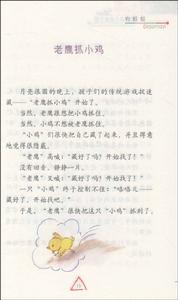 老鹰抓小鸡
月亮很圆的晚上，孩子们的传统游戏捉迷
藏——“老鹰抓小鸡”开始了。
当然，老鹰很想把小鸡抓住。
当然，小鸡不想被老鹰抓住。
“小鸡”们很快把自己藏了起来，并且得意
地觉得很隐蔽。
“老鹰”高喊：“藏好了吗？开始找了！”
没有回音，静静一片。
“老鹰”又喊：“藏好了吗？开始找了！”
一只“小鸡”终于控制不住：“咯咯儿——
藏好了，开始找吧。”
于是，“老鹰”很快把这只“小鸡”抓到了。